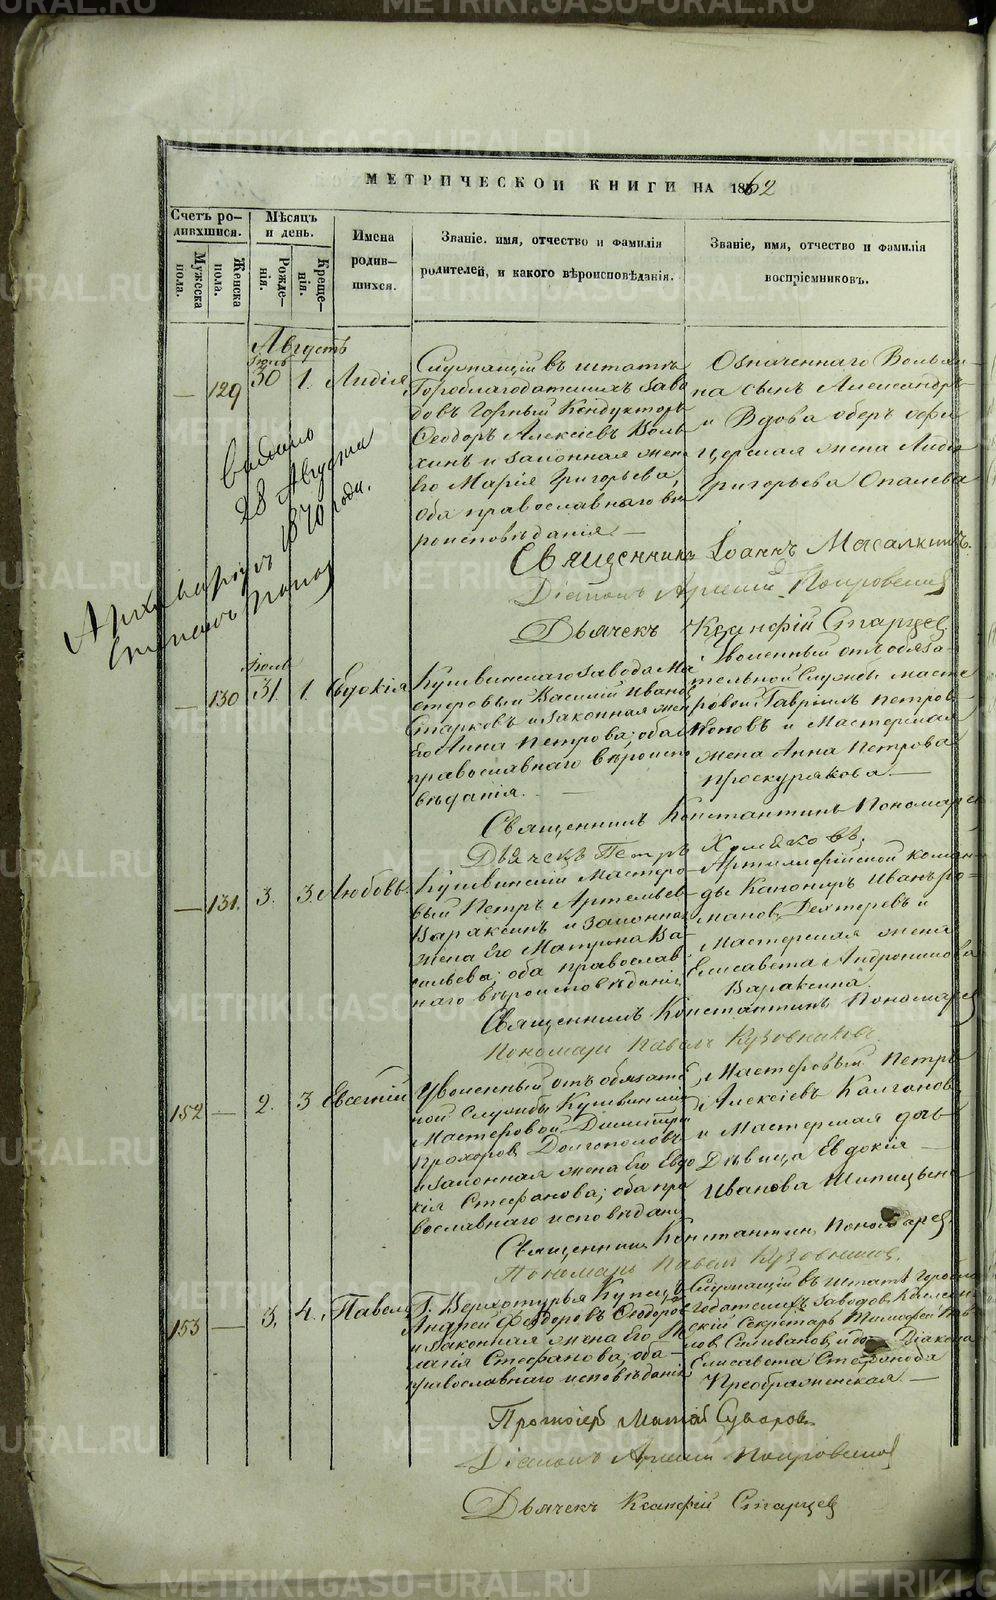 МЕТРИЧЕСКОЙ КНИГИ НА 1862
Счетъ ро-
дившихся.
Мужеска
пола.
Женска
пола.
Мѣсяцъ
и день.
Рожде-
нія.
Креще-
нія.
Имена
родив-
шихся.
Званіе, имя, отчество и фамилія
родителей, и какого вѣроисповѣданія.
Званіе, имя, отчество и фамилія
воспріемниковъ.
Августъ
Іюль
— 129 30 1. Лидія
Служащій въ штатѣ
Гороблагодатскихъ заво
довъ Горный Кондукторъ
Феодоръ Алексіевъ Воль
хинъ и законная жен
Его Марія Григорьева,
оба православнаго вѣ
роисповѣданія.—
Означеннаго Вольхи-
на сынъ Александръ
и Вдова оберъ офи
церская жена Лидія
Григорьева Опалева
Священникъ Іоаннъ Масалкинъ.
Діаконъ Арсеній Покровскій
Дьячекъ Ксанфій Старцев
выдано
28 Августа
1870 года.
Іюль
— 130 31. 1. Евдокія
Кушвинскаго завода Ма
стеровый Василій Иванов
Старковъ и законная жен
Его Анна Петрова; оба
православнаго вѣроиспо
вѣданія. —
Уволенный отъ обяза-
тельной Службы масте
ровой Гавріилъ Петров
Коновъ и Мастерская
жена Анна Петрова
Проскурякова.—
Священникъ Константинъ Пономарев
Дьячекъ Петръ Хомяковъ.
— 131. 3. 3. Любовь
Кушвинскій Мастеро
вый Петръ Артемьев
Вараксинъ и законная
жена Его Матрона Ва-
сильева; оба православ
наго вѣроисповѣданія
Артиллерійской коман-
ды Канониръ Иванъ Ро-
манов Дехтеревъ и
Мастерская жена
Елисавета Андроникова
Вараксина.
Священникъ Константинъ Пономарев
Пономарь Павелъ Кузовниковъ
152 — 2. 3 Евсегній
Уволенный отъ обязате
ной Службы Кушвинскій
Мастеровой Димитрій
Прохоров Долгополовъ
и законная жена Его Евдо
кія Стефанова; оба пра
вославнаго исповѣданія
Мастеровый Петръ
Алексіевъ Калганов
и Мастерская дочь
Дѣвица Евдокія
Иванова Шипицына
Священникъ Константинъ Пономарев
Пономарь Павелъ Кузовников.
153 — 3, 4. Павелъ
Г. Верхотурья Купецъ
Андрей Федоровъ Феодоров
и законная жена Его
Стефанова; оба—
православнаго исповѣданія
Служащій въ штатѣ Горобла
годатскихъ Заводов Коллеж
скій Секретарь Тимофей
Селиванов и Діакона
Елисавета Стефанова
Преображенская.—
Протоіерей Матфій Суворов
Діаконъ Арсеній Покровский
Дьячекъ Ксанфій Старцев
METRIKI.GASO-URAL.RU